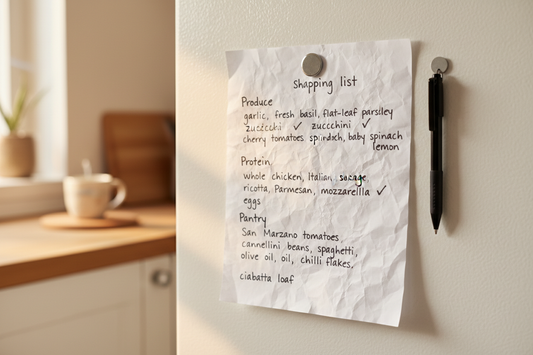 Shapping list
Produce
garlic, fresh basil, flat-leaf parsley
✓ zuccchini ✓
cherry tomatoes baby spinach
lemon
Protein
whole chicken, Italian
ricotta, Parmesan, mozzarella ✓
eggs
Pantry
San Marzano tomatoes,
cannellini beans, spaghetti,
olive oil, oil, chilli flakes,
ciabatta loaf